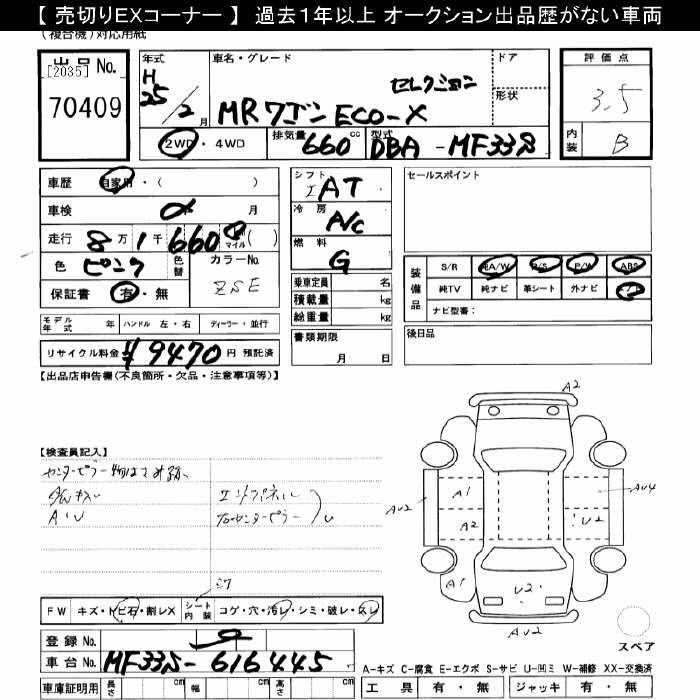 【 売切りEXコーナー 】 過去1年以上 オークション出品歴がない車両
(複合機)対応用紙
出品 No.
[2035]
70409
年式
H
25/2月
車名・グレード
セレクション
MRワゴン ECO-X
ドア
形状
評価点
3.5
内装
B
2WD・4WD
排気量 660 cc
型式 DBA-MF33S
車歴 自家用・( )
車検 月
走行 8万1千660 マイル ( )
色 ピンク 色替
カラーNo. ZSE
保証書 有・無
シフト
IAT
冷房
A/C
燃料
G
乗車定員 名
積載量 kg
総重量 kg
書類期限
月 日
セールスポイント
装備品
S/R 純A/W P/S P/W ABS
純TV 純ナビ 革シート 外ナビ エア
ナビ型番:
後日品
モデル年式 年 ハンドル 左・右 ディーラー・並行
リサイクル料金 ¥9470円 預託済
【出品店申告欄(不良箇所・欠品・注意事項等)】
【検査員記入】
AIU
エンドパネル
右センターピラー
A2
AU2
A1
A2
AU4
U2
A1
U2
AU2
FW キズ・トビ石・割レX シート内装 コゲ・穴・汚レ・シミ・破レ・スレ
登録 No.
車台 No. MF33S-616445
スペア
A-キズ C-腐食 E-エクボ S-サビ U-凹ミ W-補修 XX-交換済
車庫証明用 長さ cm 幅 cm 高さ cm
工具 有・無 ジャッキ 有・無